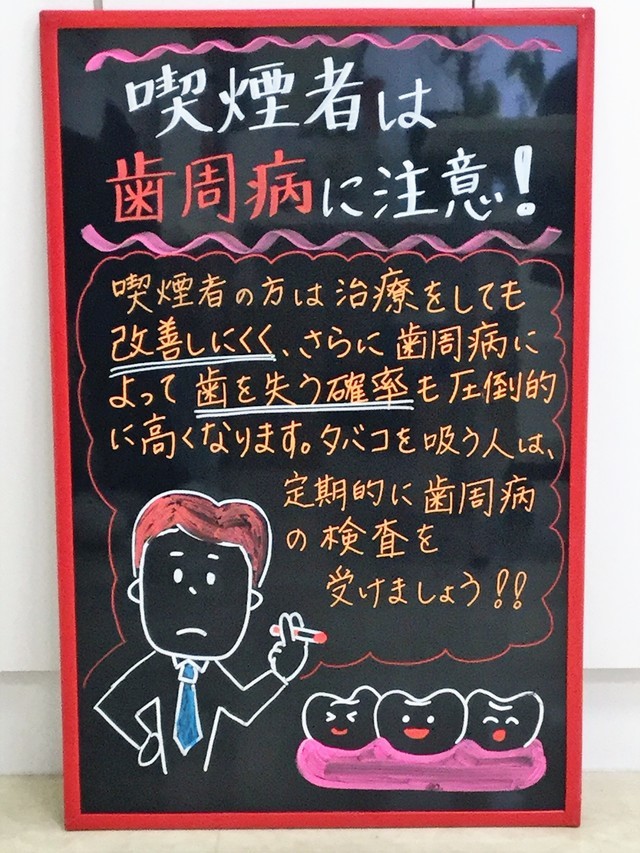 喫煙者は
歯周病に注意!
喫煙者の方は治療をしても
改善しにくく、さらに歯周病に
よって歯を失う確率も圧倒的
に高くなります。タバコを吸う人は、
定期的に歯周病
の検査を
受けましょう!!